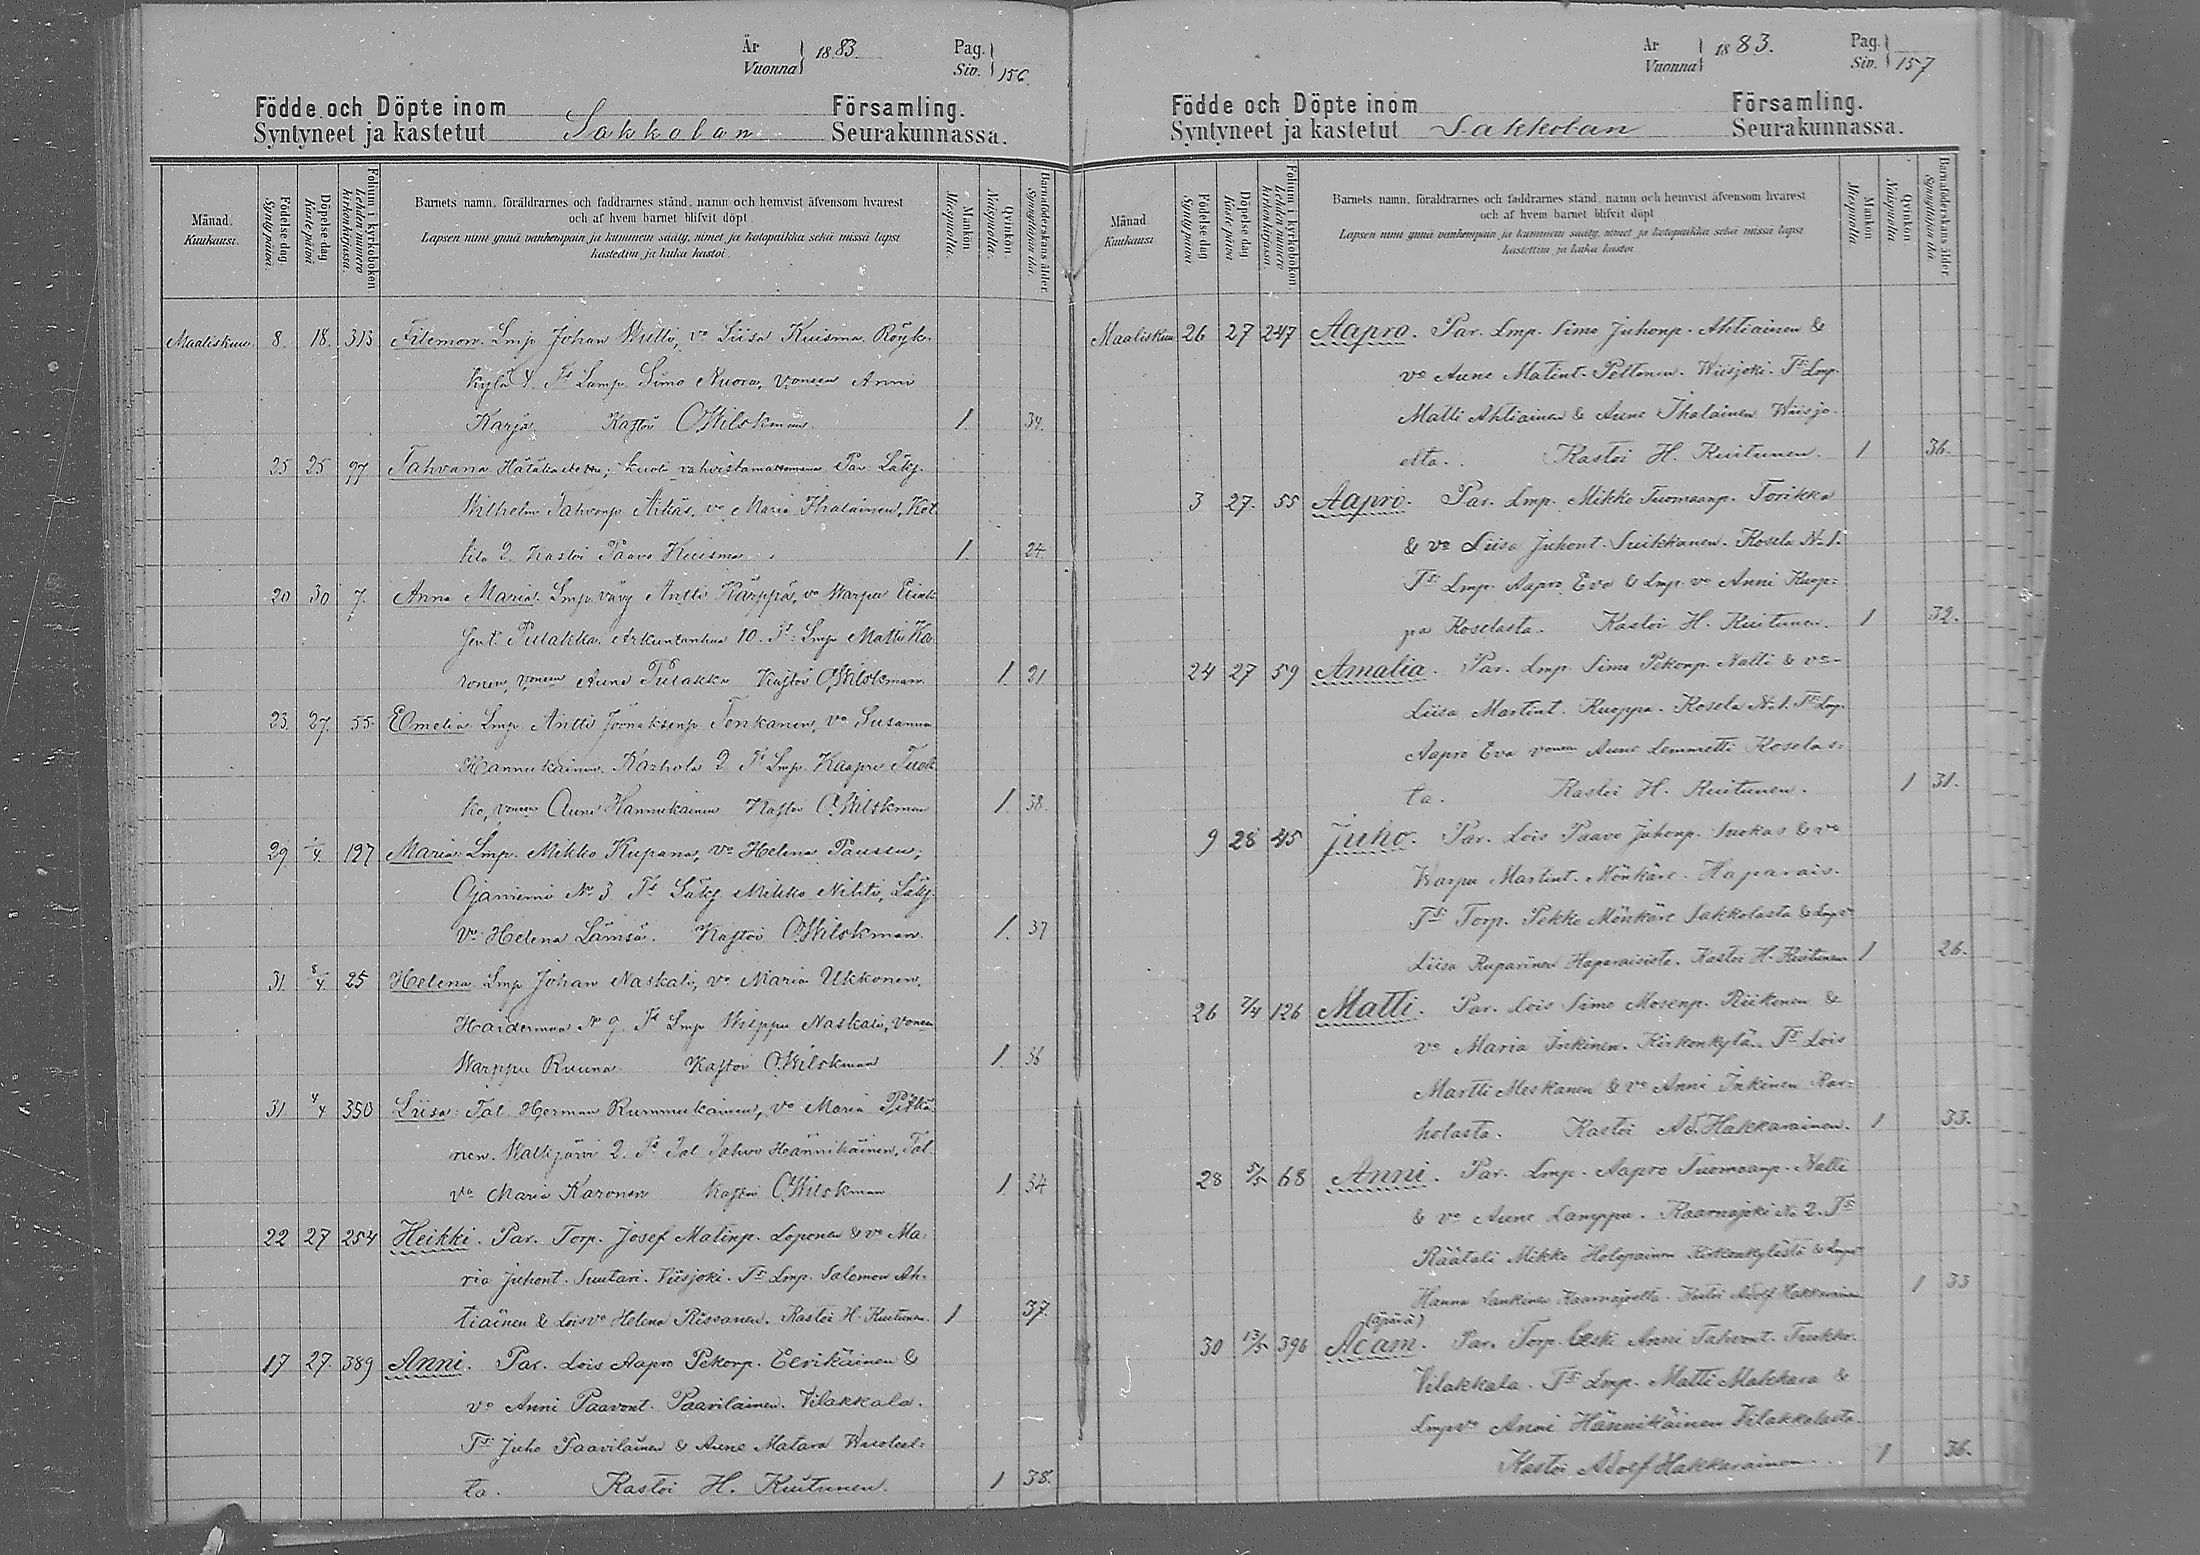 År
Vuonna 1883.
Pag.
Siv. 156
Födde och Döpte inom
Syntyneet ja kastetut Sakkolan
Församling.
Seurakunnassa.
Månad.
Kuukausi.
Födelse dag
Syntypäivä.
Döpelse dag
Kastepäivä.
Folium i kyrkoboken
Lehden numero
kirkonkirjassa.
Barnets namn, föräldrarnes och faddrarnes stånd, namn och hemvist äfvensom hvarest
och af hvem barnet blifvit döpt.
Lapsen nimi ynnä vanhempain ja kummein sääty, nimet ja kotopaikka sekä missä lapsi
kastettiin ja kuka kastoi.
Mankön.
Miespuolia.
Qvinkön.
Naispuolia.
Barnaföderskans ålder.
Synnyttäjän ikä.
Maaliskuu. 8. 18. 313 Filemon. Lmp Johan Wutti, vo Liisa Kuisma. Röyk-
kylä 4. Ts Lamp. Simo Nuora, vonsen Anni
Karja Kastoi O. Wilskman. 1. 34.
25 25 97 Tahvana Hätäkasteessa; kuoli vahvistamattomana Par. Lätkj.
Wilhelm Tahvonp Äikäs, vo Maria Ihalainen, Kot
tila 2. kastoi Paavo Kuisma. 1. 24.
20 30 7. Anna Maria. Lmp. vävy Antti Kärppä, vo Warpu Erik
sent. Pulakka. Arkuntanhua 10. Ts. Lmp Matti Ka-
ronen, vonsen Anni Pulakka Kastoi O. Wilskman. 1. 21
23. 27. 55. Emelia Lmp. Antti Joonaksenp. Tenkanen, vo Susanna
Hannukainen. Karhola 2. Ts Lmp. Kaapre Tuok
ko, vonsen Anni Hannukainen Kastoi O. Wilskman 1 38.
29. 1/4 197 Maria Lmp. Mikko Kupana, vo Helena Pausen;
Ojaniemi No 3 Ts Lätkj Mikko Nikiti, Lätkj-
vo Helena Lämsä. Kastoi O. Wilskman. 1. 37
31. 8/4 25 Helena. Lmp Johan Naskali, vo Maria Ukkonen,
Haiderman No 9. Ts Lmp Wilppu Naskali, vonsen
Warppu Ruuna Kastoi O. Wilskman 1. 36
31. 4/4 350 Liisa. Tal. Herman Rummukainen, vo Maria Pitkä
nen. Walkjärvi 2. Ts Tal Tahvo Hännikäinen, Tal.
vo Maria Karonen Kastoi O. Wilskman 1. 34
22 27 254 Heikki. Par. Torp. Josef Matinp. Loponen & vo Ma-
ria Juhont. Suutari. Viisjoki. Ts Lmp. Salomon Ah-
tiainen & Loisvo Helena Rissanen. Kastoi H. Kuitunen. 1 37.
17 27. 389 Anni. Par. Lois Aapro Pekonp. Eerikäinen &
vo Anni Paavont. Paavilainen. Vilakkala.
Ts Juho Paavilainen & Anne Matara
ta. Kastoi H. Kuitunen. 1 38.
År
Vuonna 1883.
Pag.
Siv. 157
Födde och Döpte inom
Syntyneet ja kastetut Sakkolan
Församling.
Seurakunnassa.
Månad.
Kuukausi
Födelse dag
Syntypäivä
Döpelse dag
Kastepäivä
Folium i kyrkoboken
Lehden numero
kirkonkirjassa.
Barnets namn, föräldrarnes och faddrarnes stånd, namn och hemvist äfvensom hvarest
och af hvem barnet blifvit döpt
Lapsen nimi ynnä vanhempain ja kummein sääty, nimet ja kotopaikka sekä missä lapsi
kastettiin ja kuka kastoi
Mankön
Miespuolia
Qvinkön
Naispuolia.
Barnaföderskans ålder
Synnyttäjän ikä
Maaliskuu 26 27 247 Aapro. Par. Lmp. Simo Juhonp. Ahtiainen &
vo Anne Matint. Peltonen. Wiisjoki. Ts Lmp.
Matti Ahtiainen & Anne Ihalainen Wiisjo-
elta. Kastoi H. Kuitunen. 1 36.
3 27. 55 Aapro. Par. Lmp. Mikko Tuomaanp. Torikka
& vo Liisa Juhont. Suikkanen. Kosela No 1.
Ts Lmp. Aapro Eva & Lmp. vo Anni Kuop-
pa Koselasta. Kastoi H. Kuitunen. 1 32.
24 27 59 Amalia. Par. Lmp. Simo Pekonp. Natti & vo-
Liisa Martint. Kuoppa. Kosela No 1. Ts Lmp.
Aapro Eva vonsen Anne Lemmetti Koselas-
ta. Kastoi H. Kuitunen. 1 31.
9 28 45 Juho. Par. Lois Paavo Juhonp. Suokas & vo
Warpu Martint. Mönkäre. Haparais.
Ts Torp. Pekko Mönkäre Sakkolasta & Lmpvo
Liisa Ruparinen Haparaisista. Kastoi H. Kuitunen 1 26.
26 2/4 126 Matti. Par. Lois Simo Mosenp. Riikonen &
vo Maria Inkinen. Kirkonkylä. Ts Lois
Martti Meskanen & vo Anni Inkinen Kar-
holasta. Kastoi Ad. Hakkarainen. 1 33.
28 5/5 68 Anni. Par. Lmp. Aapro Tuomaanp. Natti
& vo Anne Lamppu. Kaarnajoki No 2. Ts
Räätali Mikko Holopainen Kirkonkylästä & Lmpvo
Hanna Lankinen Kaarnajoelta. Kastoi Adolf Hakkarainen 1 33
(äpärä)
30 13/5 396 Adam. Par. Torp. leski Anni Tahvont. Tuokko.
Vilakkala. Ts Lmp. Matti Makkara &
Lmpvo Anni Hännikäinen Vilakkalasta
Kastoi Adolf Hakkarainen. 1 36.